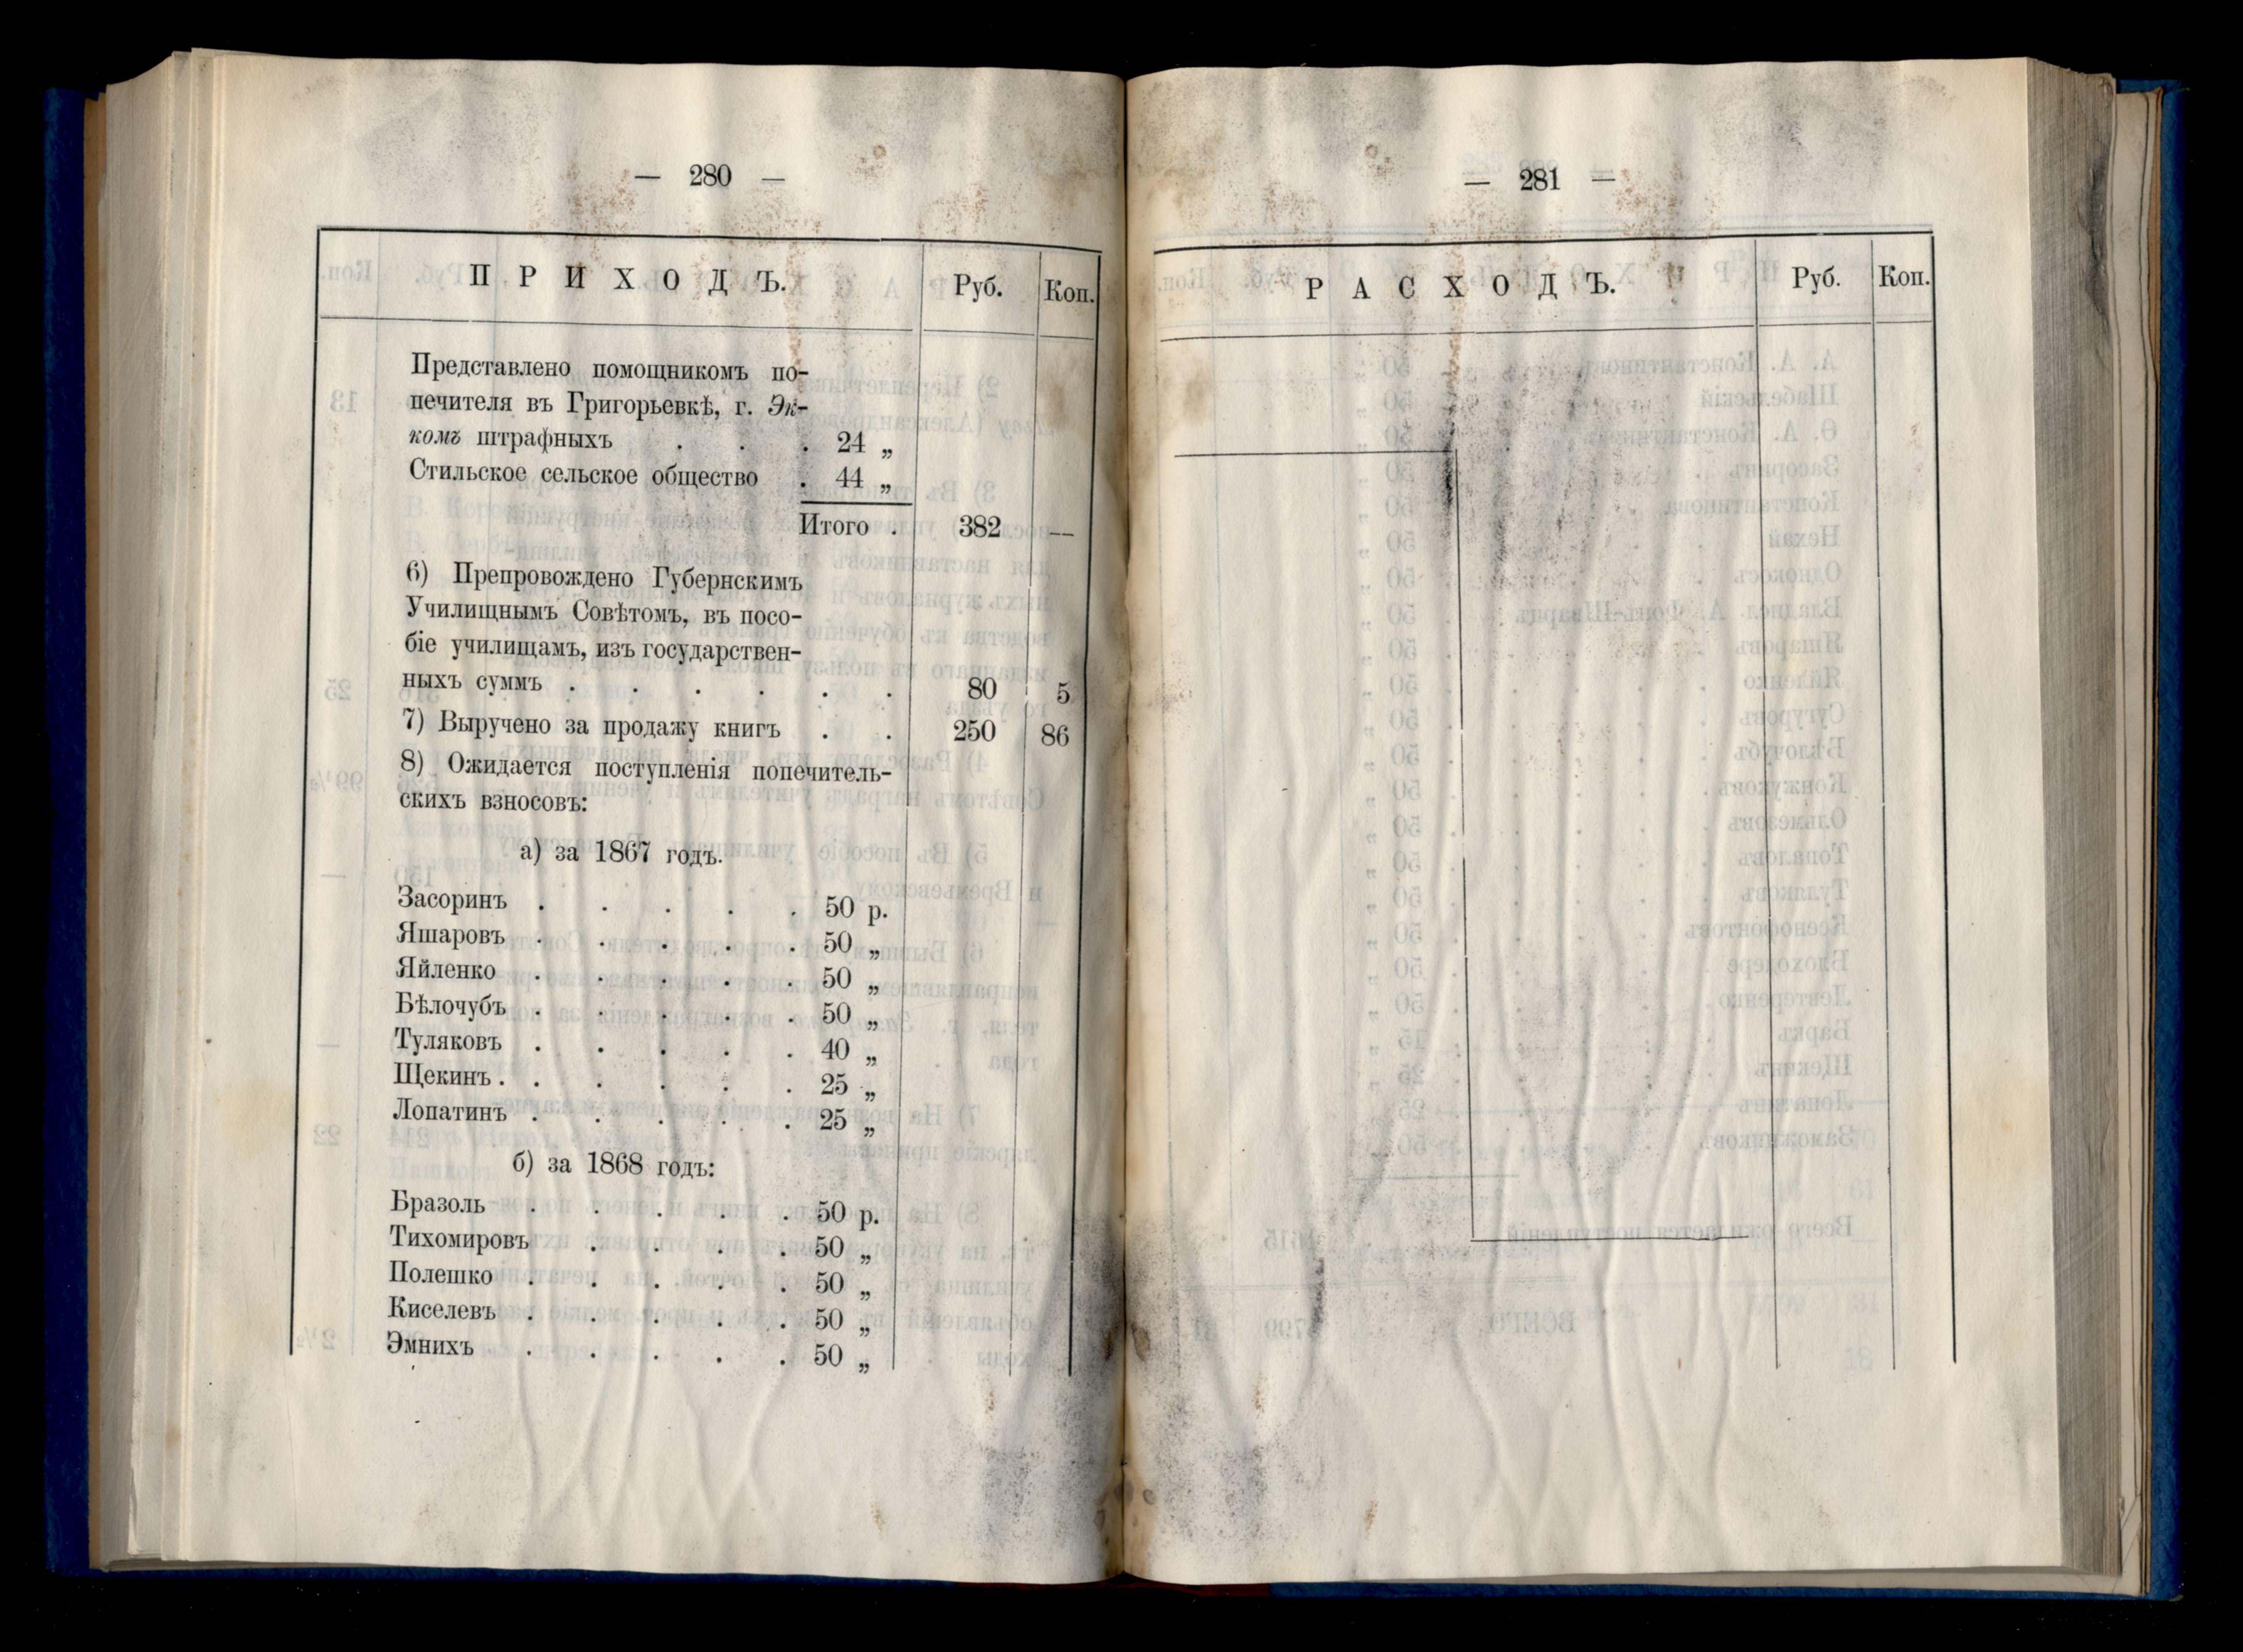 — 280 —
ПРИХОДЪ. Руб. Коп.
Представлено помощникомъ по-
печителя въ Григорьевкѣ, г. Эк-
комъ штрафныхъ . . . 24 „
Стильское сельское общество . 44 „
Итого . 382 —
6) Препровождено Губернскимъ
Училищнымъ Совѣтомъ, въ посо-
біе училищамъ, изъ государствен-
ныхъ суммъ . . . . . . 80 5
7) Выручено за продажу книгъ . . 250 86
8) Ожидается поступленія попечитель-
скихъ взносовъ:
а) за 1867 годъ.
Засоринъ . . . . . 50 р.
Яшаровъ . . . . . 50 „
Яйленко . . . . . 50 „
Бѣлочубъ . . . . . 50 „
Туляковъ . . . . . 40 „
Щекинъ . . . . . . 25 „
Лопатинъ . . . . . 25 „
б) за 1868 годъ:
Бразоль . . . . . 50 р.
Тихомировъ . . . . 50 „
Полешко . . . . . 50 „
Киселевъ . . . . . 50 „
Эмнихъ . . . . . 50 „
— 281 —
РАСХОДЪ. Руб. Коп.